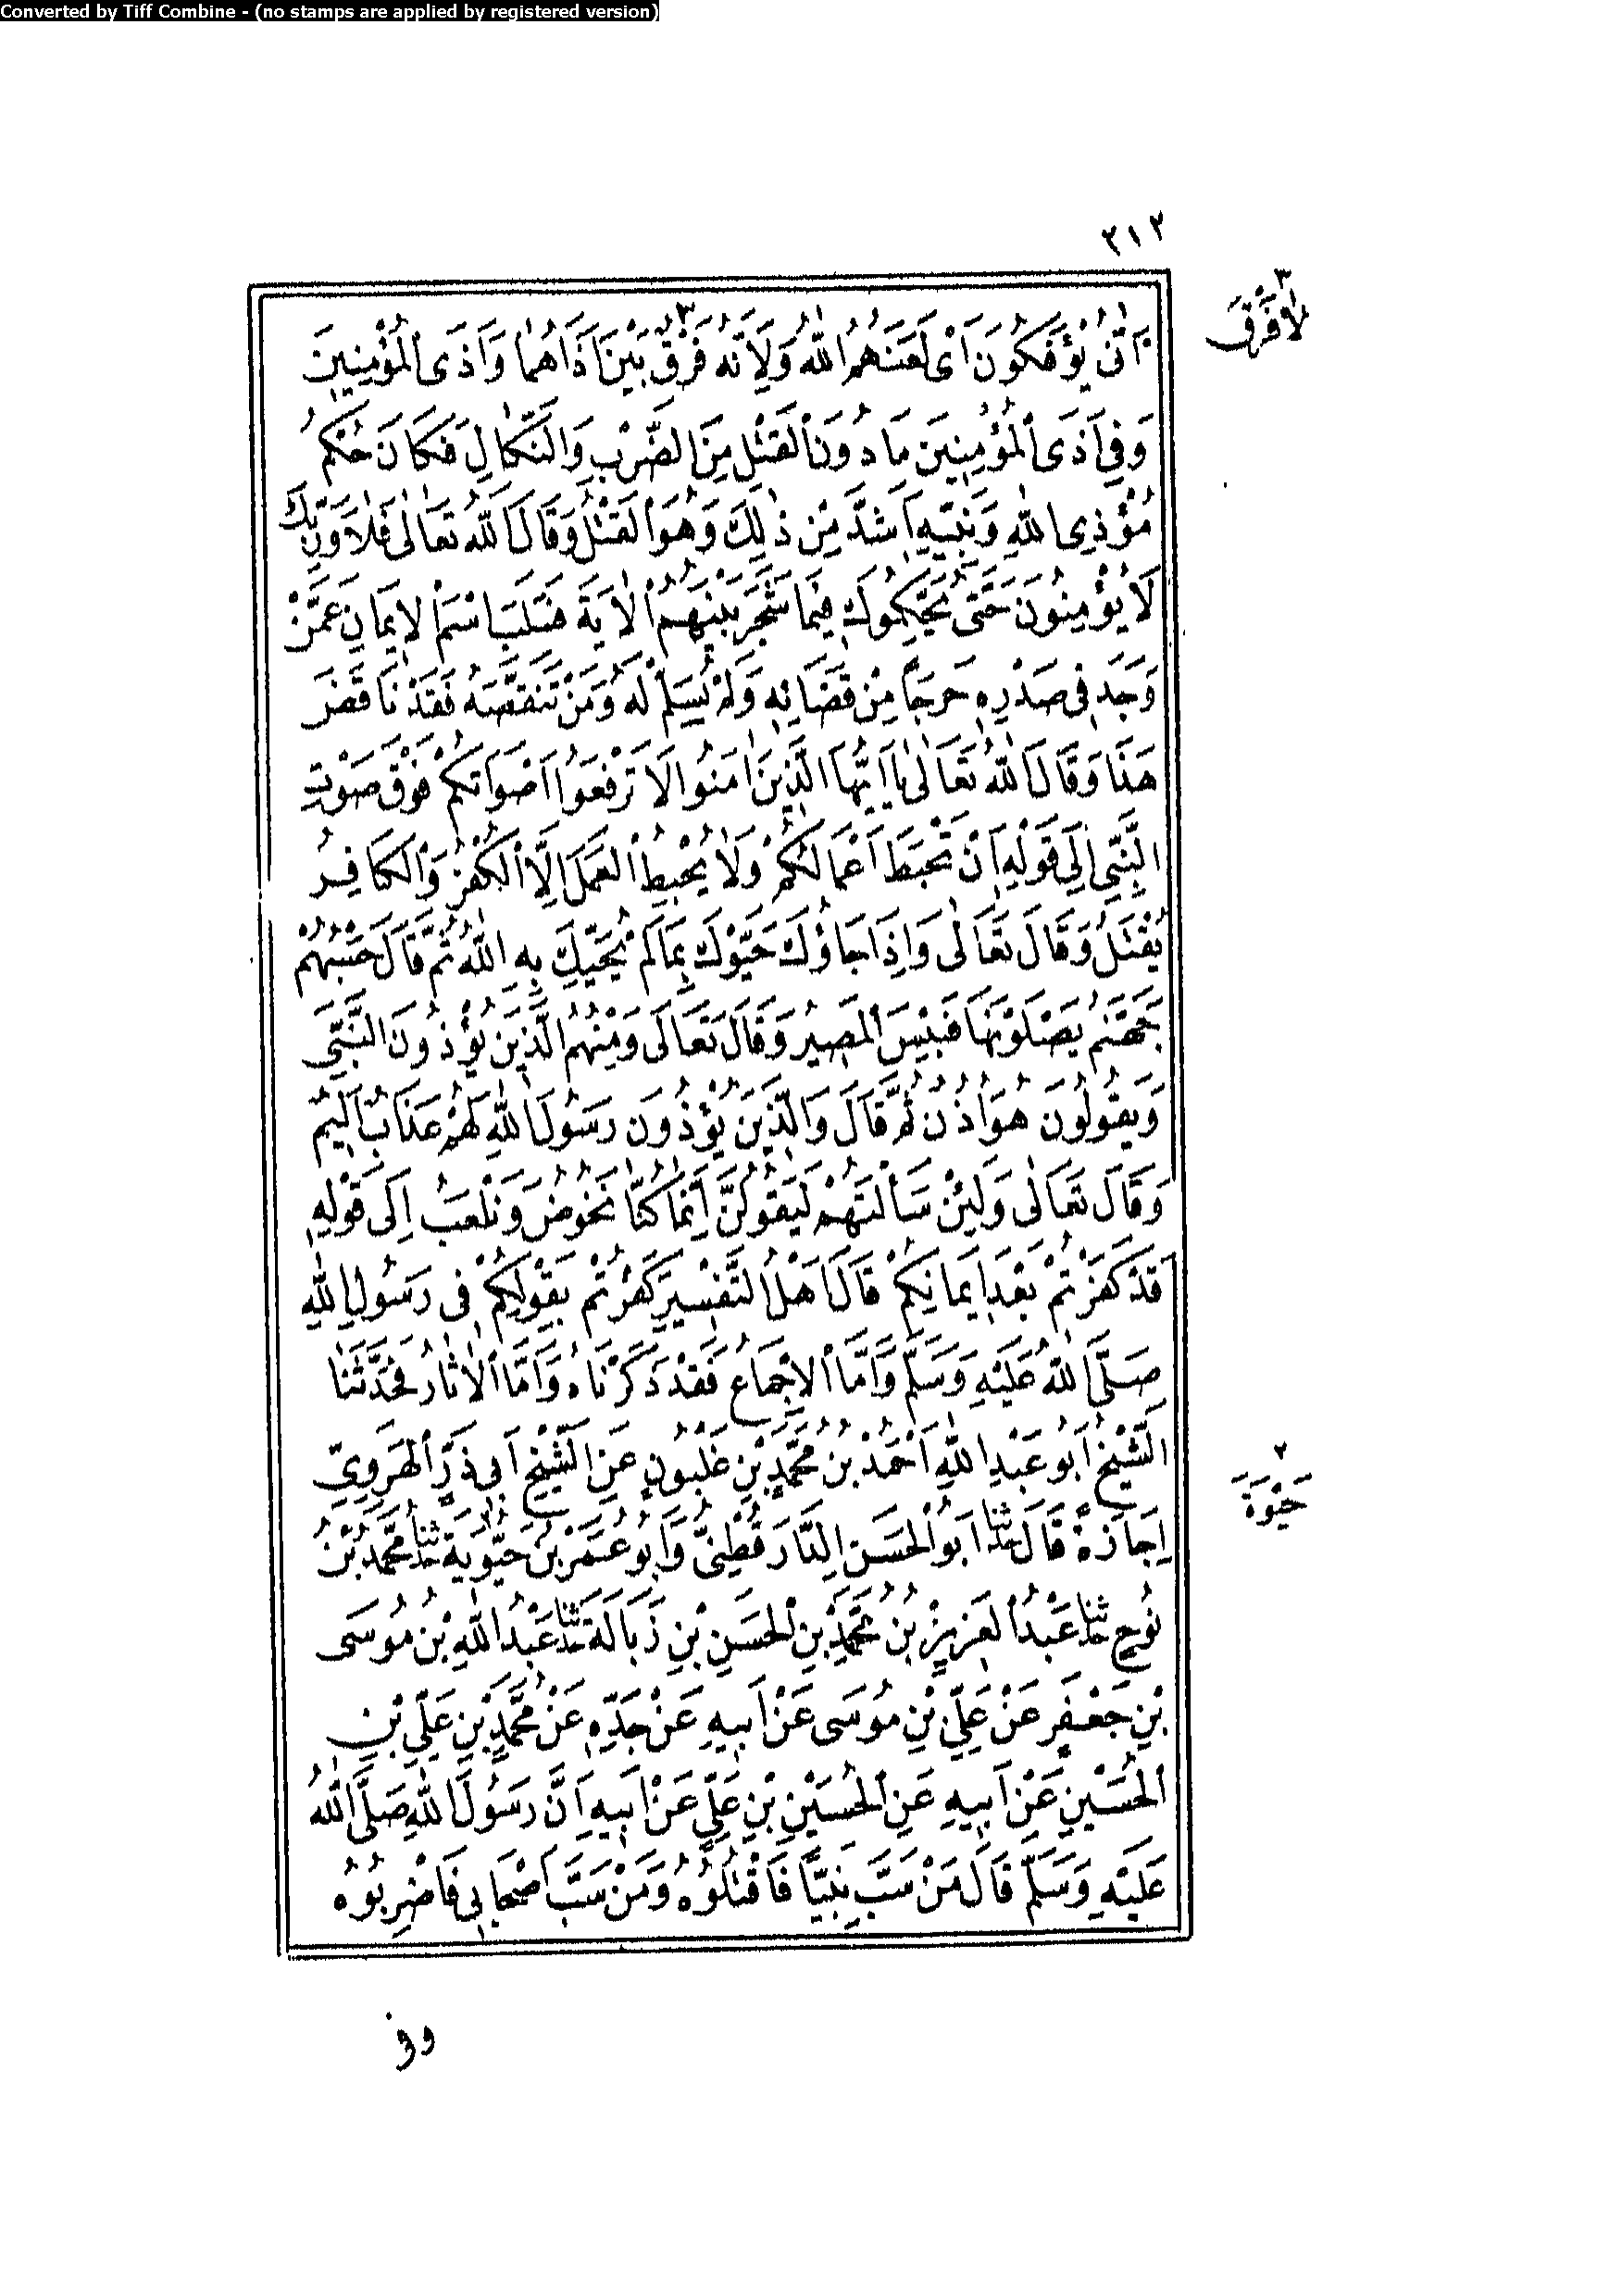 Converted by Tiff Combine - (no stamps are applied by registered version)
٢١٢
أَنّٰى يُؤْفَكُونَ اَىْ لَعَنَهُمُ اللّٰهُ وَلِاَنَّهُ فَرْقٌ٣ بَيْنَ اَذَاهُمَا وَاَذَى الْمُؤْمِنِينَ
٣ لَا فَرْقَ
وَفِى اَذَى الْمُؤْمِنِينَ مَا دُونَ الْقَتْلِ مِنَ الضَّرْبِ وَالنَّكَالِ فَكَانَ حُكْمُ
مُؤْذِى اللّٰهِ وَنَبِيِّهِ اَشَدَّ مِنْ ذٰلِكَ وَهُوَ الْقَتْلُ وَقَالَ اللّٰهُ تَعَالٰى فَلَا وَرَبِّكَ
لَا يُؤْمِنُونَ حَتّٰى يُحَكِّمُوكَ فِيمَا شَجَرَ بَيْنَهُمُ الْاٰيَةَ فَسَلَبَ اسْمَ الْاِيمَانِ عَمَّنْ
وَجَدَ فِى صَدْرِهِ حَرَجًا مِنْ قَضَائِهِ وَلَمْ يُسَلِّمْ لَهُ وَمَنْ تَنَقَّصَهُ فَقَدْ نَاقَضَ
هَذَا وَقَالَ اللّٰهُ تَعَالٰى يَا اَيُّهَا الَّذِينَ اٰمَنُوا لَا تَرْفَعُوا اَصْوَاتَكُمْ فَوْقَ صَوْتِ
النَّبِىِّ اِلَى قَوْلِهِ اَنْ تَحْبَطَ اَعْمَالُكُمْ وَلَا يُحْبِطُ الْعَمَلَ اِلَّا الْكُفْرُ وَالْكَافِرُ
يُقْتَلُ وَقَالَ تَعَالٰى وَاِذَا جَاؤُكَ حَيَّوْكَ بِمَا لَمْ يُحَيِّكَ بِهِ اللّٰهُ ثُمَّ قَالَ حَسْبُهُمْ
جَهَنَّمُ يَصْلَوْنَهَا فَبِئْسَ الْمَصِيرُ وَقَالَ تَعَالَى وَمِنْهُمُ الَّذِينَ يُؤْذُونَ النَّبِىَّ
وَيَقُولُونَ هُوَ اُذُنٌ ثُمَّ قَالَ وَالَّذِينَ يُؤْذُونَ رَسُولَ اللّٰهِ لَهُمْ عَذَابٌ اَلِيمٌ
وَقَالَ تَعَالٰى وَلَئِنْ سَاَلْتَهُمْ لَيَقُولُنَّ اِنَّمَا كُنَّا نَخُوضُ وَنَلْعَبُ اِلَى قَوْلِهِ
قَدْ كَفَرْتُمْ بَعْدَ اِيمَانِكُمْ قَالَ اَهْلُ التَّفْسِيرِ كَفَرْتُمْ بِقَوْلِكُمْ فِى رَسُولِ اللّٰهِ
صَلَّى اللّٰهُ عَلَيْهِ وَسَلَّمَ وَاَمَّا الْاِجْمَاعُ فَقَدْ ذَكَرْنَاهُ وَاَمَّا الْاٰثَارُ فَحَدَّثَنَا
الشَّيْخُ اَبُو عَبْدِ اللّٰهِ اَحْمَدُ بْنُ مُحَمَّدِ بْنِ غَلْبُونٍ عَنِ الشَّيْخِ اَبِى ذَرٍّ الْهَرَوِيِّ
اِجَازَةً قَالَ حدثنا اَبُو الْحَسَنِ الدَّارَقُطْنِىُّ وَاَبُو عُمَرَ بْنُ حَيُّويَةَ٢ حدثنا مُحَمَّدُ بْنُ
٢ حَيْوَةَ
نُوحٍ حدثنا عَبْدُ الْعَزِيزِ بْنُ مُحَمَّدِ بْنِ الْحَسَنِ بْنِ زَبَالَةَ حدثنا عَبْدُ اللّٰهِ بْنُ مُوسَى
بْنِ جَعْفَرٍ عَنْ عَلِىِّ بْنِ مُوسَى عَنْ اَبِيهِ عَنْ جَدِّهِ عَنْ مُحَمَّدِ بْنِ عَلِىِّ بْنِ
الْحُسَيْنِ عَنْ اَبِيهِ عَنِ الْحُسَيْنِ بْنِ عَلِىٍّ عَنْ اَبِيهِ اَنَّ رَسُولَ اللّٰهِ صَلَّى اللّٰهُ
عَلَيْهِ وَسَلَّمَ قَالَ مَنْ سَبَّ نَبِيًّا فَاقْتُلُوهُ وَمَنْ سَبَّ اَصْحَابِى فَاضْرِبُوهُ
وفى